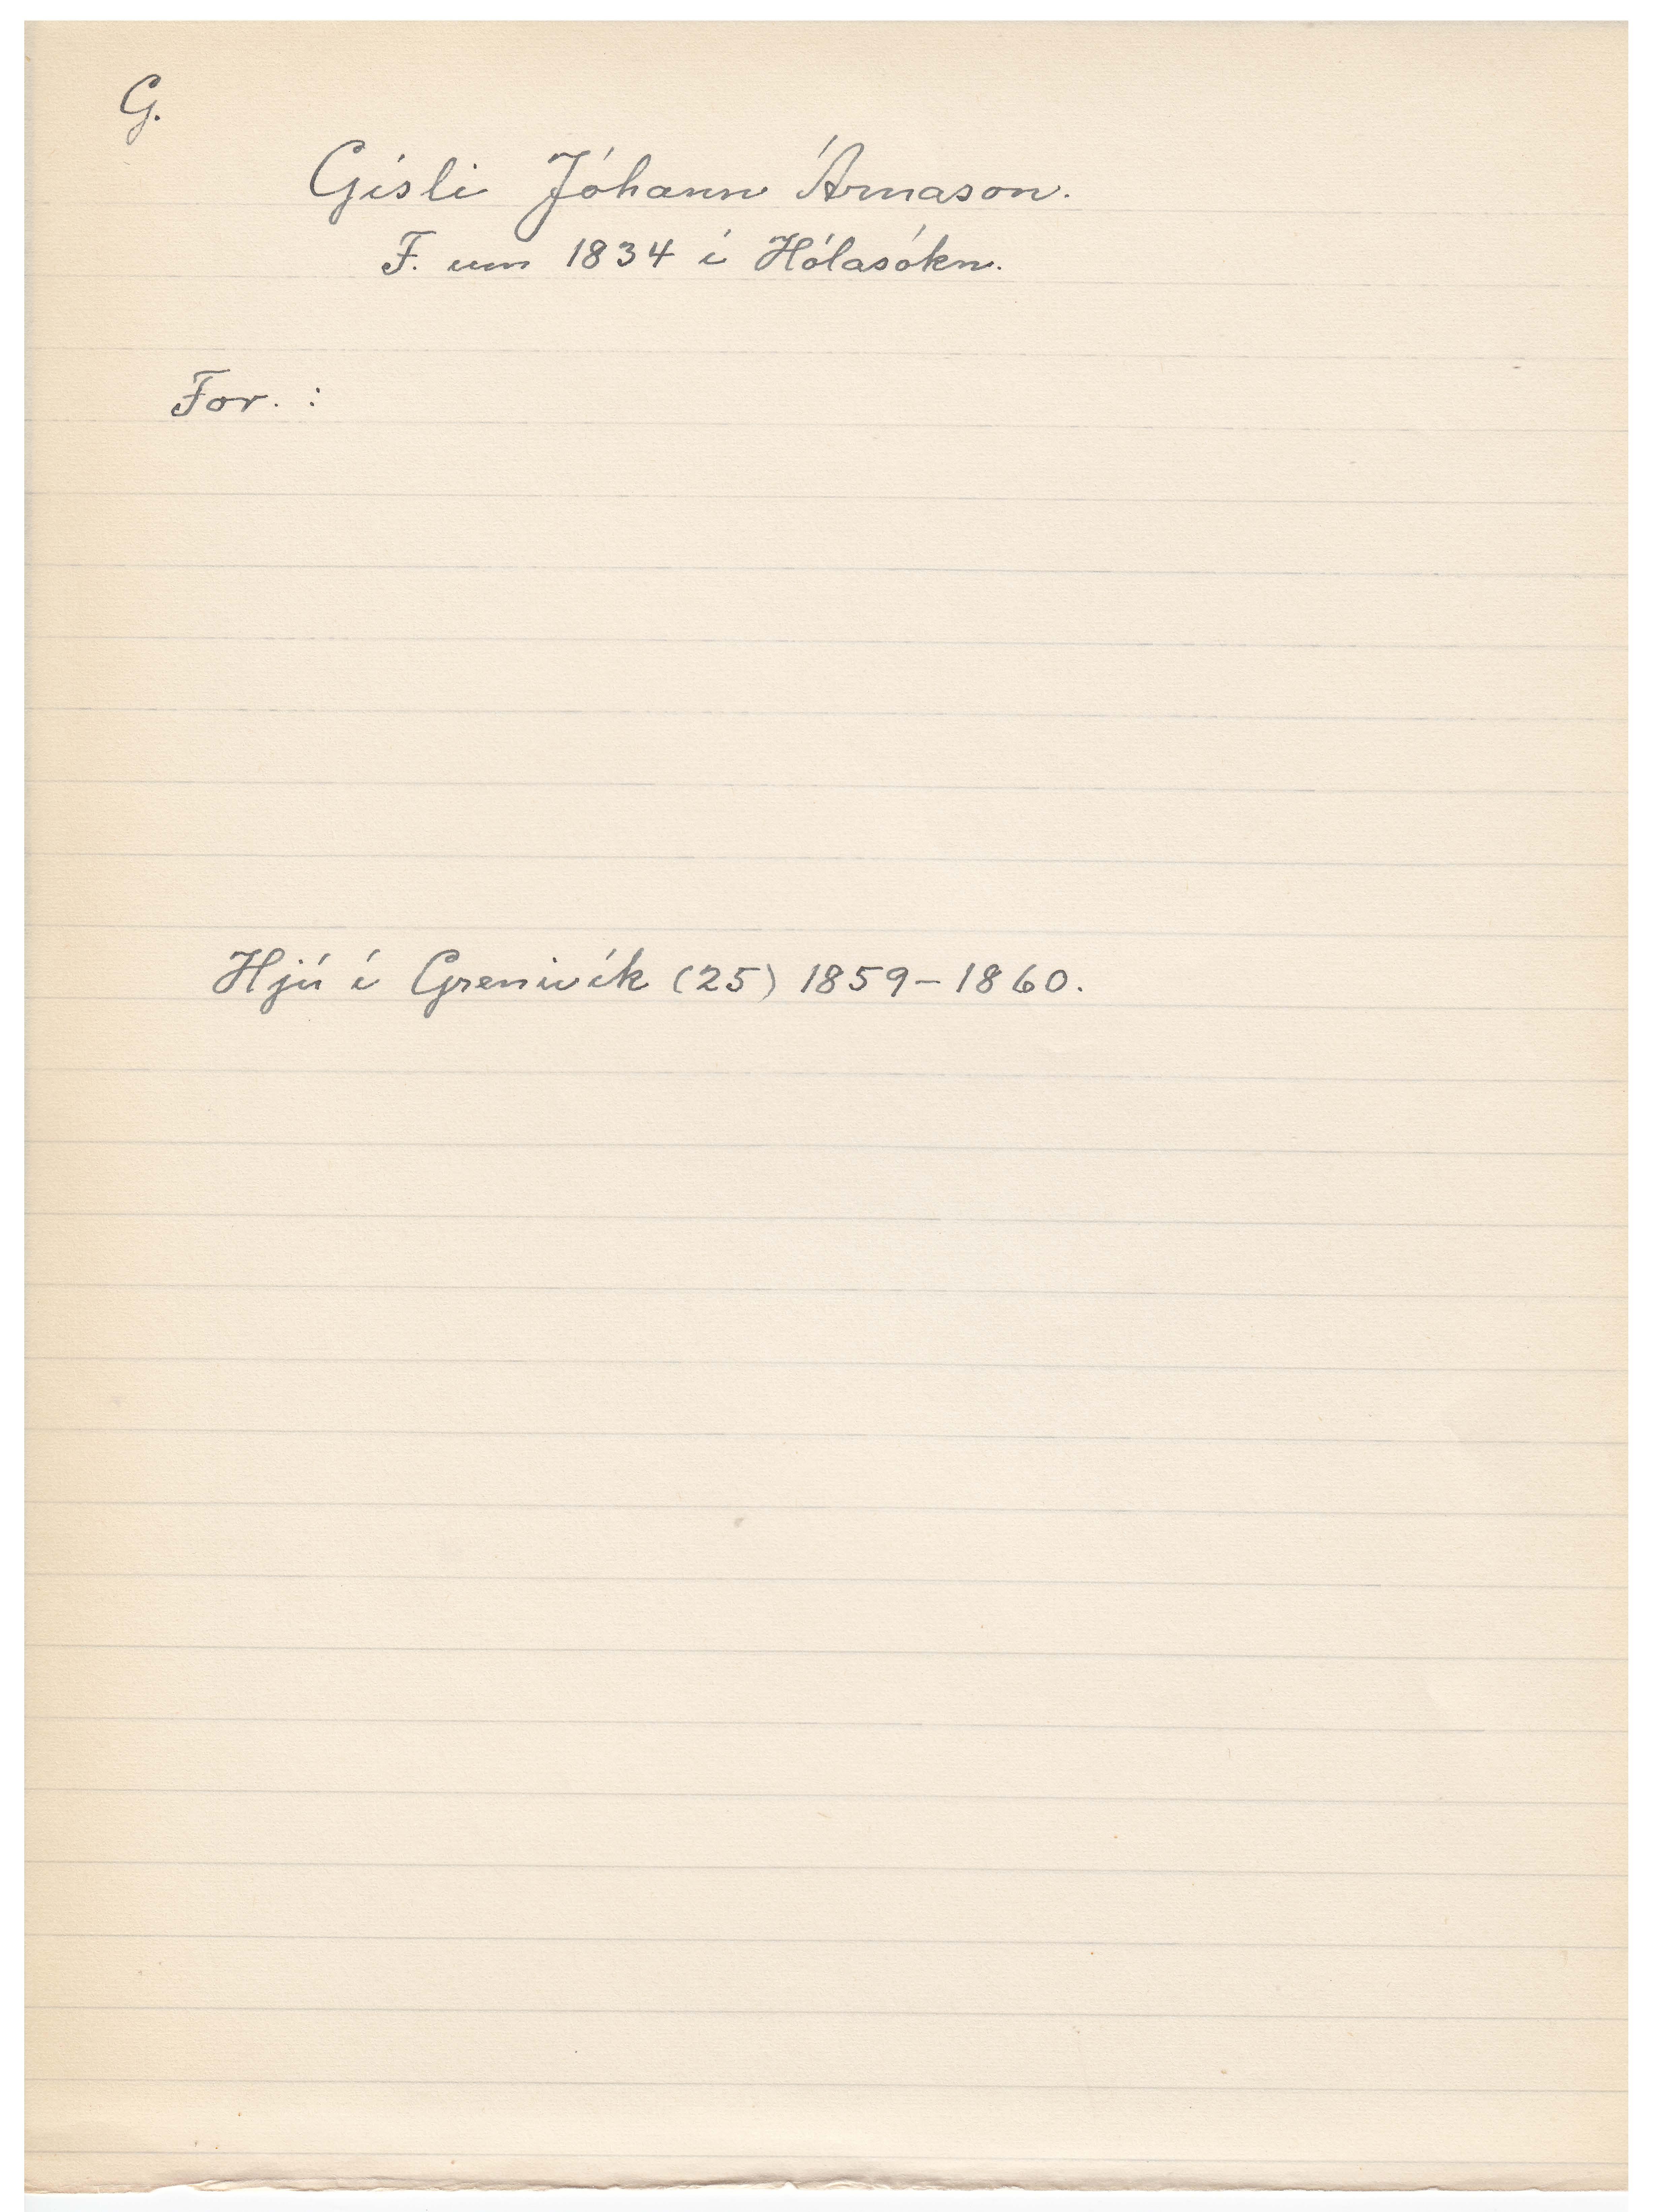 G.
Gísli Jóhann Árnason.
F. um 1834 í Hólasókn.
For. :
Hjú í Grenivík (25) 1859-1860.